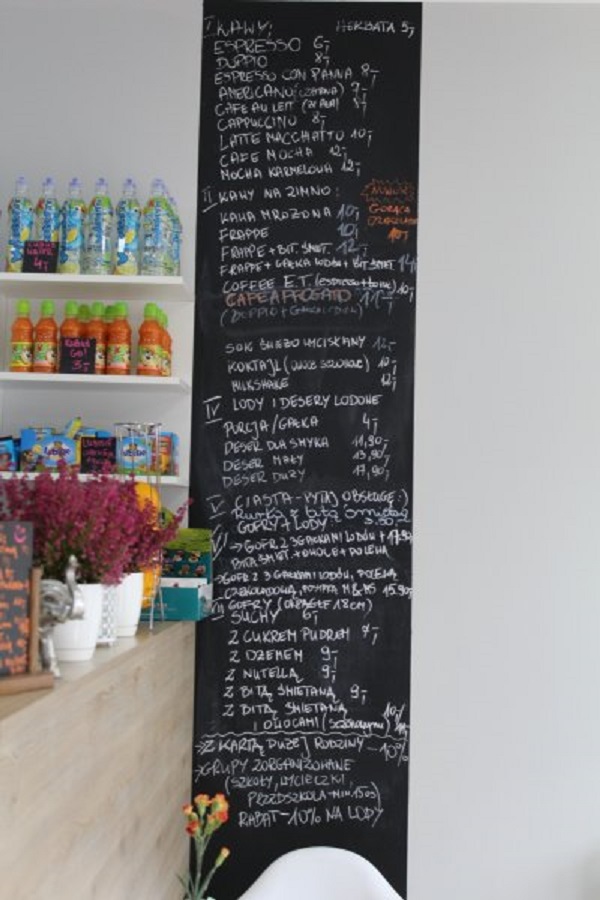 I KAWY: HERBATA 5,-
ESPRESSO 6,-
DOPPIO 8,-
ESPRESSO CON PANNA 8,-
AMERICANO (CZARNA) 7,-
CAFE AU LEIT 8,-
CAPPUCCINO 8,-
LATTE MACCHIATTO 10,-
CAFE MOCHA 12,-
MOCHA KARMELOWA 12,-
II KAWY NA ZIMNO:
KAWA MROŻONA 10,-
GORĄCA
CZEKOLADA
10,-
FRAPPE 10,-
FRAPPE + BIT. ŚMIET. 12,-
FRAPPE + GAŁKA LODU + BIT. ŚMIET. 14,-
COFFEE E.T. 10,-
CAFE AFFOGATO 11,-
(DOPPIO + GAŁKA LODU)
SOK ŚWIEŻO WYCISKANY 12,-
KOKTAJL (OWOCE SEZONOWE) 10,-
MILKSHAKE 12,-
IV LODY I DESERY LODOWE
PORCJA/GAŁKA 4,-
DESER DLA SMYKA 11,90,-
DESER MAŁY 13,90,-
DESER DUŻY 17,90,-
V CIASTA - PYTAJ OBSŁUGĘ :)
Rurka z bitą śmietaną 3.50,-
GOFRY + LODY
→ GOFR Z 3 GAŁKAMI LODÓW + 17.90
BITA ŚMIET. + OWOCE + POLEWA
→ GOFR Z 3 GAŁKAMI LODÓW, POLEWĄ
CZEKOLADOWĄ, POSYPKĄ M&MS 15.90,-
VII GOFRY (OKRĄGŁE 18cm)
SUCHY 6,-
Z CUKREM PUDREM 7,-
Z DŻEMEM 9,-
Z NUTELLĄ 9,-
Z BITĄ ŚMIETANĄ 9,-
Z BITĄ ŚMIETANĄ
I OWOCAMI (sezonowymi)
→ Z KARTĄ DUŻEJ RODZINY -10%
→ GRUPY ZORGANIZOWANE
(SZKOŁY, WYCIECZKI,
PRZEDSZKOLA - MIN. 15 OS)
RABAT -10% NA LODY
4,-
KUBUŚ
GO!
3,-